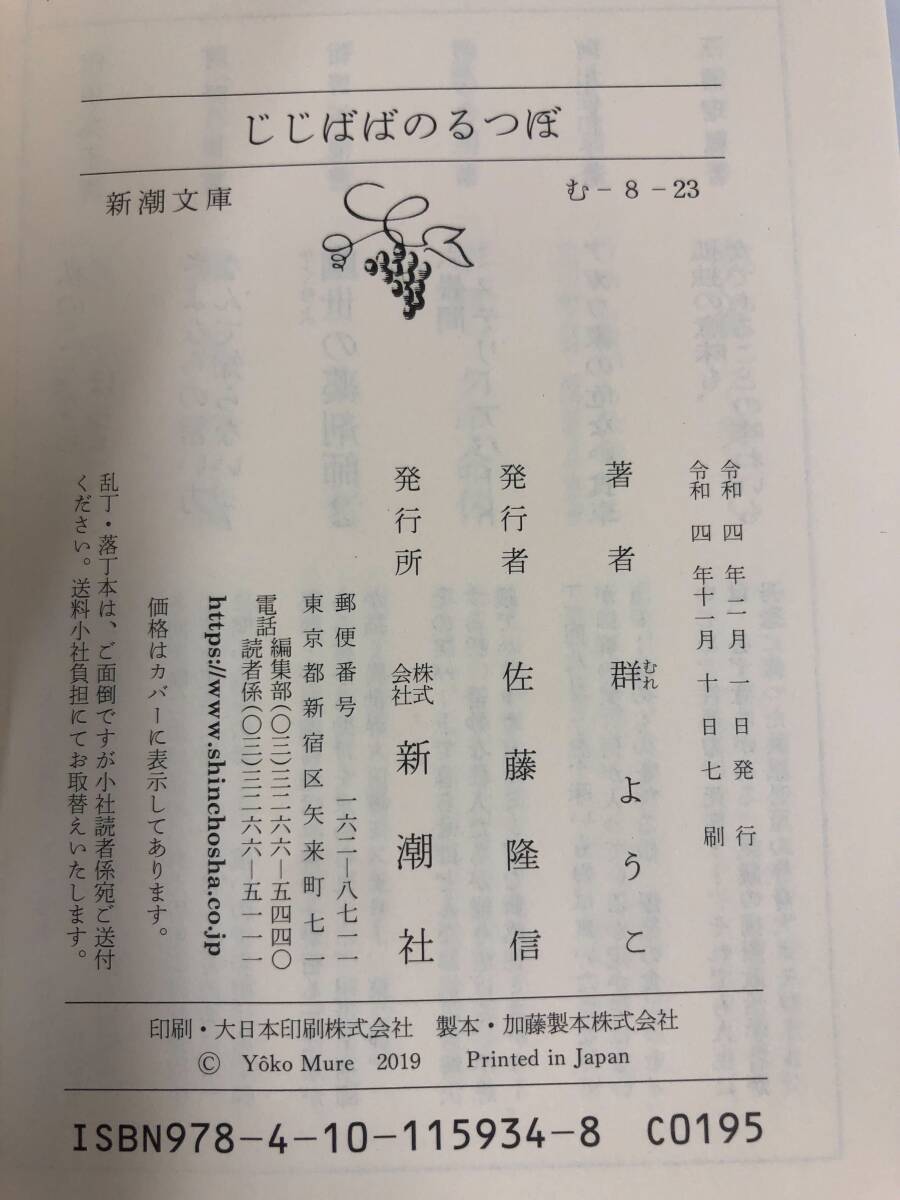 じじばばのるつぼ
新潮文庫
む-8-23
令和四年二月一日発行
令和四年十一月十日七刷
著者 群 ようこ
むれ
発行者 佐藤隆信
発行所 株式会社 新潮社
郵便番号 一六二―八七一一
東京都新宿区矢来町七一
電話 編集部(〇三)三二六六―五四四〇
読者係(〇三)三二六六―五一一一
https://www.shinchosha.co.jp
価格はカバーに表示してあります。
乱丁・落丁本は、ご面倒ですが小社読者係宛ご送付
ください。送料小社負担にてお取替えいたします。
印刷・大日本印刷株式会社 製本・加藤製本株式会社
© Yôko Mure 2019 Printed in Japan
ISBN978-4-10-115934-8 C0195